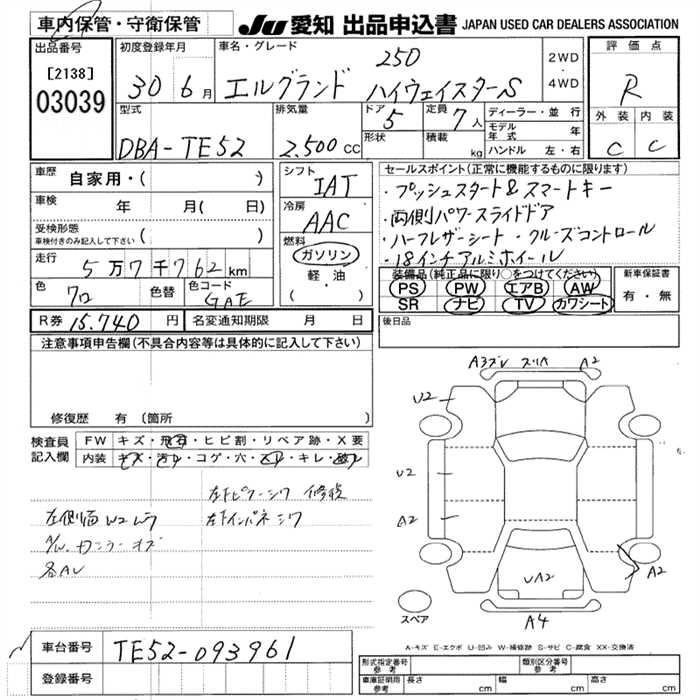 車内保管・守衛保管
JU 愛知 出品申込書 JAPAN USED CAR DEALERS ASSOCIATION
出品番号
[2138]
03039
初度登録年月
30年 6月
車名・グレード
250
エルグランド ハイウェイスターS
2WD
・
4WD
評価点
R
外装 内装
C C
型式
DBA-TE52
排気量
2,500 CC
ドア 5
形状
定員 7人
積載 kg
ディーラー・並行
モデル年式 年
ハンドル 左・右
車歴 自家用・( )
車検 年 月( 日)
受検形態
車検付きのみ記入して下さい ( )
走行 5万7千762km
色 クロ 色替 色コード GAE
シフト IAT
冷房 AAC
燃料
ガソリン
軽・油
( ・ )
セールスポイント(正常に機能するものに限ります)
・プッシュスタート&スマートキー
・両側パワースライドドア
・ハーフレザーシート・クルーズコントロール
・18インチアルミホイール
装備品(純正品に限り○をつけてください)
PS PW エアB AW
SR ナビ TV カワシート
新車保証書
有・無
R券 15,740円 名変通知期限 月 日
後日品
注意事項申告欄(不具合内容等は具体的に記入して下さい)
修復歴 有 (箇所 )
検査員
記入欄
FW キズ・飛石・ヒビ割・リペア跡・X要
内装 キズ・汚れ・コゲ・穴・キレ・
左側面 W2
各AU
修復
左下インパネ
A3 A2
U2
U2
A2
A2
UA2
A4
スペア
A-キズ E-エクボ U-凹み W-補修跡 S-サビ C-腐食 XX-交換済
車台番号 TE52-093961
登録番号
形式指定番号
参考
類別区分番号
参考
車庫証明用
参考
長さ cm 幅 cm 高さ cm